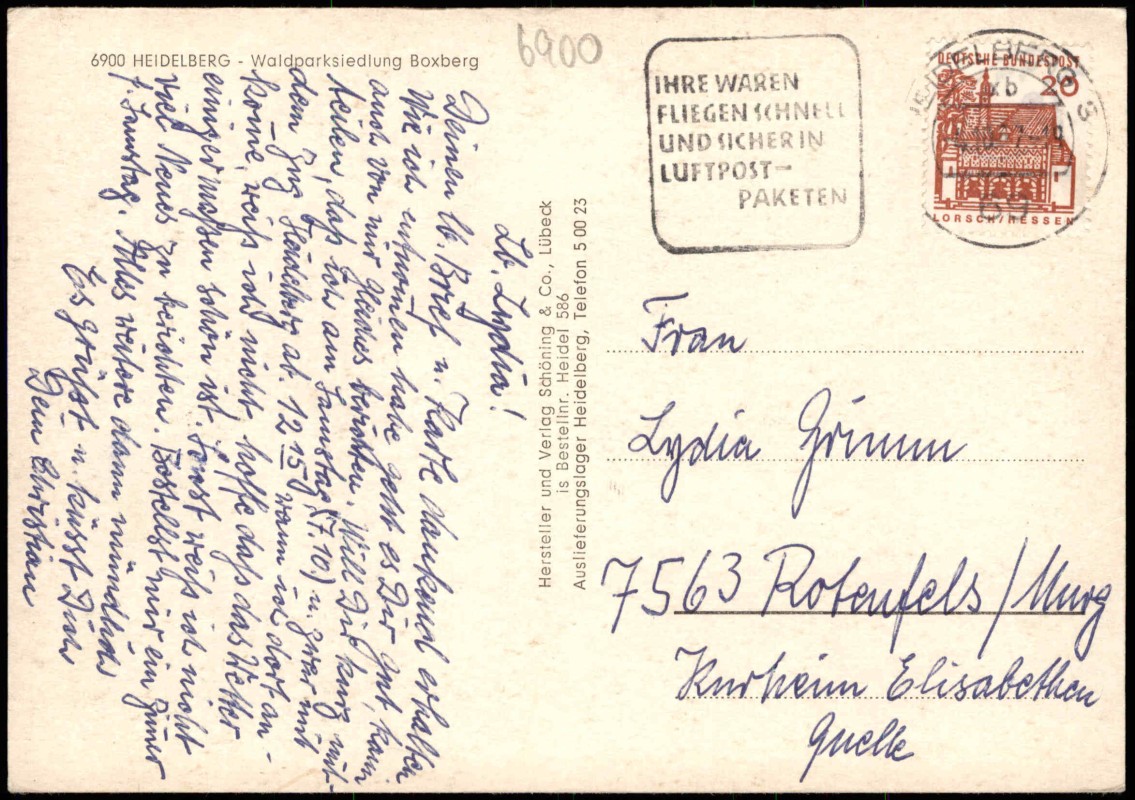 6900 HEIDELBERG - Waldparksiedlung Boxberg
6900
IHRE WAREN
FLIEGEN SCHNELL
UND SICHER IN
LUFTPOST-
PAKETEN
HEIDELBERG
DEUTSCHE BUNDESPOST
20
LORSCH/HESSEN
Lb. Lydia!
Deinen lb. Brief u. Karte dankend erhalten
Wie ich entnommen habe geht es Dir gut, kann
auch von mir Gleiches berichten. Will Dir kurz mit-
teilen, daß ich am Samstag (7.10) u. zwar mit
dem Zug Heidelberg ab. 12 15 wann ich dort an-
komme, weis ich nicht. hoffe daß das Wetter
einigermaßen schön ist. Sonst weiß ich nicht
viel Neues zu berichten. Bestellst mir ein Zimer
f. Samstag. Alles weitere dann mündlich
Es grüßt u. küsst Dich
Dein Christian
Hersteller und Verlag Schöning & Co., Lübeck
is Bestellnr. Heidel 586
Auslieferungslager Heidelberg, Telefon 5 00 23
Frau
Lydia Grimm
7563 Rotenfels / Murg
Kurheim Elisabethen
Quelle